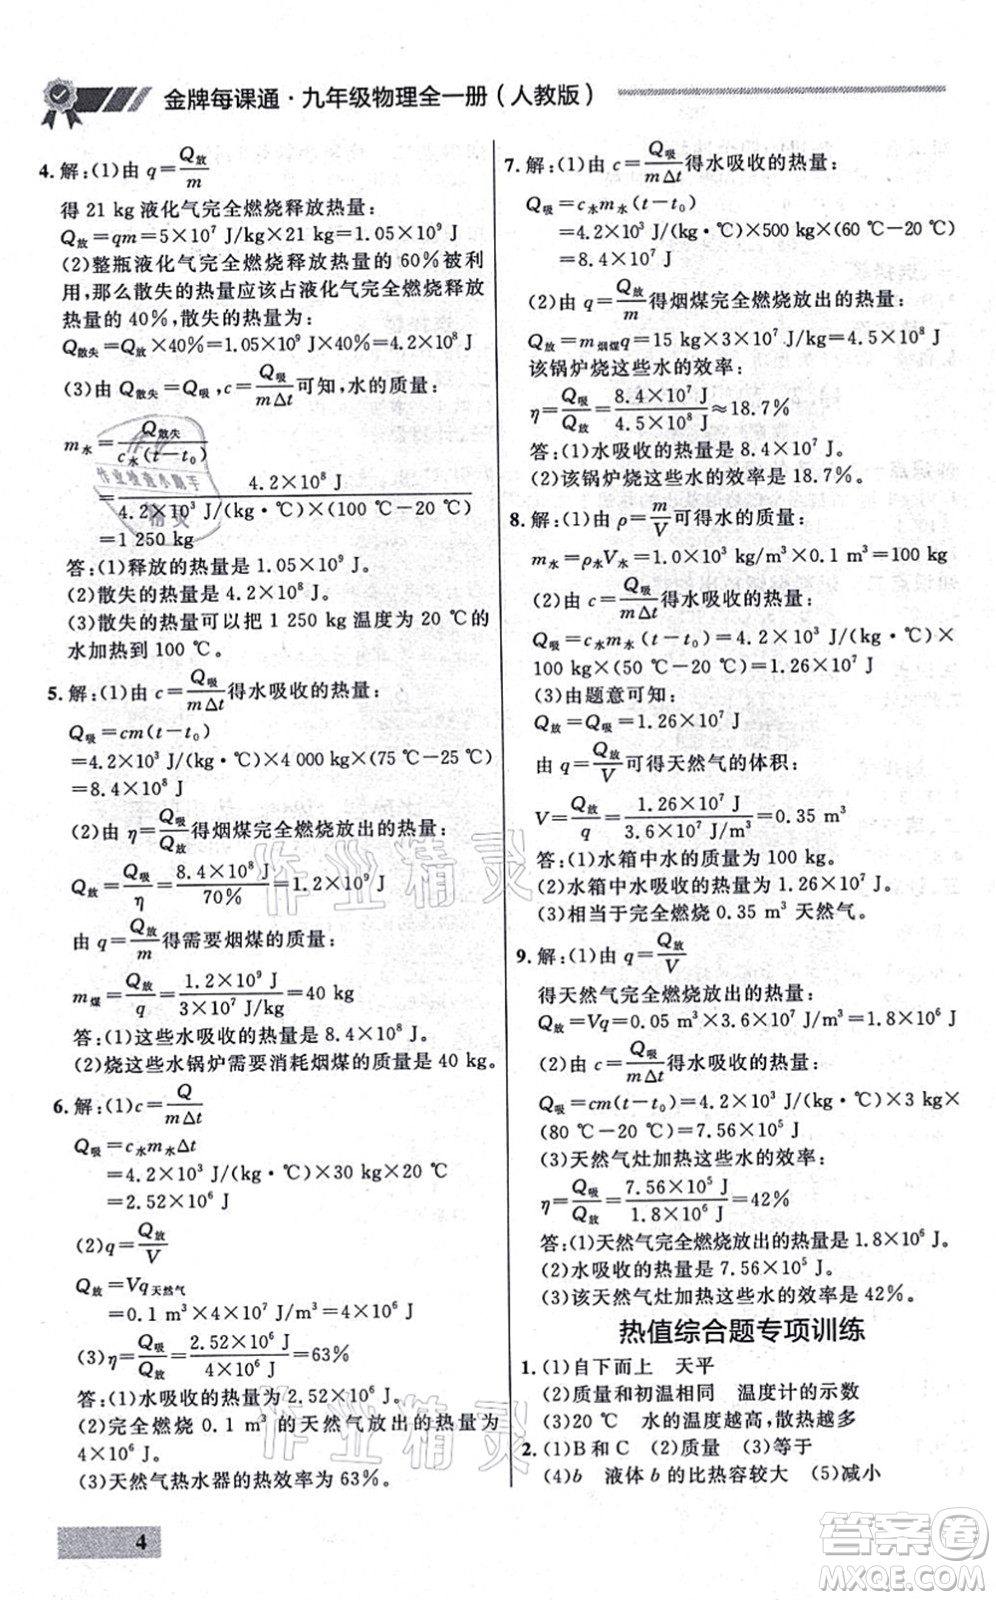 金牌每课通·九年级物理全一册(人教版)
4. 解:(1)由 q=Q放/m
得 21 kg 液化气完全燃烧释放热量:
Q放=qm=5×10⁷ J/kg×21 kg=1.05×10⁹ J
(2)整瓶液化气完全燃烧释放热量的 60%被利
用,那么散失的热量应该占液化气完全燃烧释放
热量的 40%,散失的热量为:
Q散失=Q放×40%=1.05×10⁹ J×40%=4.2×10⁸ J
(3)由 Q散失=Q吸,c=Q吸/mΔt可知,水的质量:
m水=Q散失/c水(t-t₀)
=4.2×10⁸ J/4.2×10³ J/(kg·℃)×(100 ℃-20 ℃)
=1 250 kg
答:(1)释放的热量是 1.05×10⁹ J。
(2)散失的热量是 4.2×10⁸ J。
(3)散失的热量可以把 1 250 kg 温度为 20 ℃的
水加热到 100 ℃。
5. 解:(1)由 c=Q吸/mΔt得水吸收的热量:
Q吸=cm(t-t₀)
=4.2×10³ J/(kg·℃)×4 000 kg×(75 ℃-25 ℃)
=8.4×10⁸ J
(2)由 η=Q吸/Q放得烟煤完全燃烧放出的热量:
Q放=Q吸/η=8.4×10⁸ J/70%=1.2×10⁹ J
由 q=Q放/m得需要烟煤的质量:
m煤=Q放/q=1.2×10⁹ J/3×10⁷ J/kg=40 kg
答:(1)这些水吸收的热量是 8.4×10⁸ J。
(2)烧这些水锅炉需要消耗烟煤的质量是 40 kg。
6. 解:(1)c=Q/mΔt
Q吸=c水m水Δt
=4.2×10³ J/(kg·℃)×30 kg×20 ℃
=2.52×10⁶ J
(2)q=Q放/V
Q放=Vq天然气
=0.1 m³×4×10⁷ J/m³=4×10⁶ J
(3)η=Q吸/Q放=2.52×10⁶ J/4×10⁶ J=63%
答:(1)水吸收的热量为 2.52×10⁶ J。
(2)完全燃烧 0.1 m³ 的天然气放出的热量为
4×10⁶ J。
(3)天然气热水器的热效率为 63%。
4
7. 解:(1)由 c=Q吸/mΔt得水吸收的热量:
Q吸=c水m水(t-t₀)
=4.2×10³ J/(kg·℃)×500 kg×(60 ℃-20 ℃)
=8.4×10⁷ J
(2)由 q=Q放/m得烟煤完全燃烧放出的热量:
Q放=m烟煤q=15 kg×3×10⁷ J/kg=4.5×10⁸ J
该锅炉烧这些水的效率:
η=Q吸/Q放=8.4×10⁷ J/4.5×10⁸ J≈18.7%
答:(1)水吸收的热量是 8.4×10⁷ J。
(2)该锅炉烧这些水的效率是 18.7%。
8. 解:(1)由 ρ=m/V可得水的质量:
m水=ρ水V水=1.0×10³ kg/m³×0.1 m³=100 kg
(2)由 c=Q吸/mΔt得水吸收的热量:
Q吸=c水m水(t-t₀)=4.2×10³ J/(kg·℃)×
100 kg×(50 ℃-20 ℃)=1.26×10⁷ J
(3)由题意可知:
Q放=Q吸=1.26×10⁷ J
由 q=Q放/V可得天然气的体积:
V=Q放/q=1.26×10⁷ J/3.6×10⁷ J/m³=0.35 m³
答:(1)水箱中水的质量为 100 kg。
(2)水箱中水吸收的热量为 1.26×10⁷ J。
(3)相当于完全燃烧 0.35 m³ 天然气。
9. 解:(1)由 q=Q放/V
得天然气完全燃烧放出的热量:
Q放=Vq=0.05 m³×3.6×10⁷ J/m³=1.8×10⁶ J
(2)由 c=Q吸/mΔt得水吸收的热量:
Q吸=cm(t-t₀)=4.2×10³ J/(kg·℃)×3 kg×
(80 ℃-20 ℃)=7.56×10⁵ J
(3)天然气灶加热这些水的效率:
η=Q吸/Q放=7.56×10⁵ J/1.8×10⁶ J=42%
答:(1)天然气完全燃烧放出的热量是 1.8×10⁶ J。
(2)水吸收的热量是 7.56×10⁵ J。
(3)该天然气灶加热这些水的效率是 42%。
热值综合题专项训练
1. (1)自下而上 天平
(2)质量和初温相同 温度计的示数
(3)20 ℃ 水的温度越高,散热越多
2. (1)B 和 C (2)质量 (3)等于
(4)b 液体 b 的比热容较大 (5)减小
作业检查小助手
精灵
作业精灵
作业精灵
答案圈
MXQE.COM